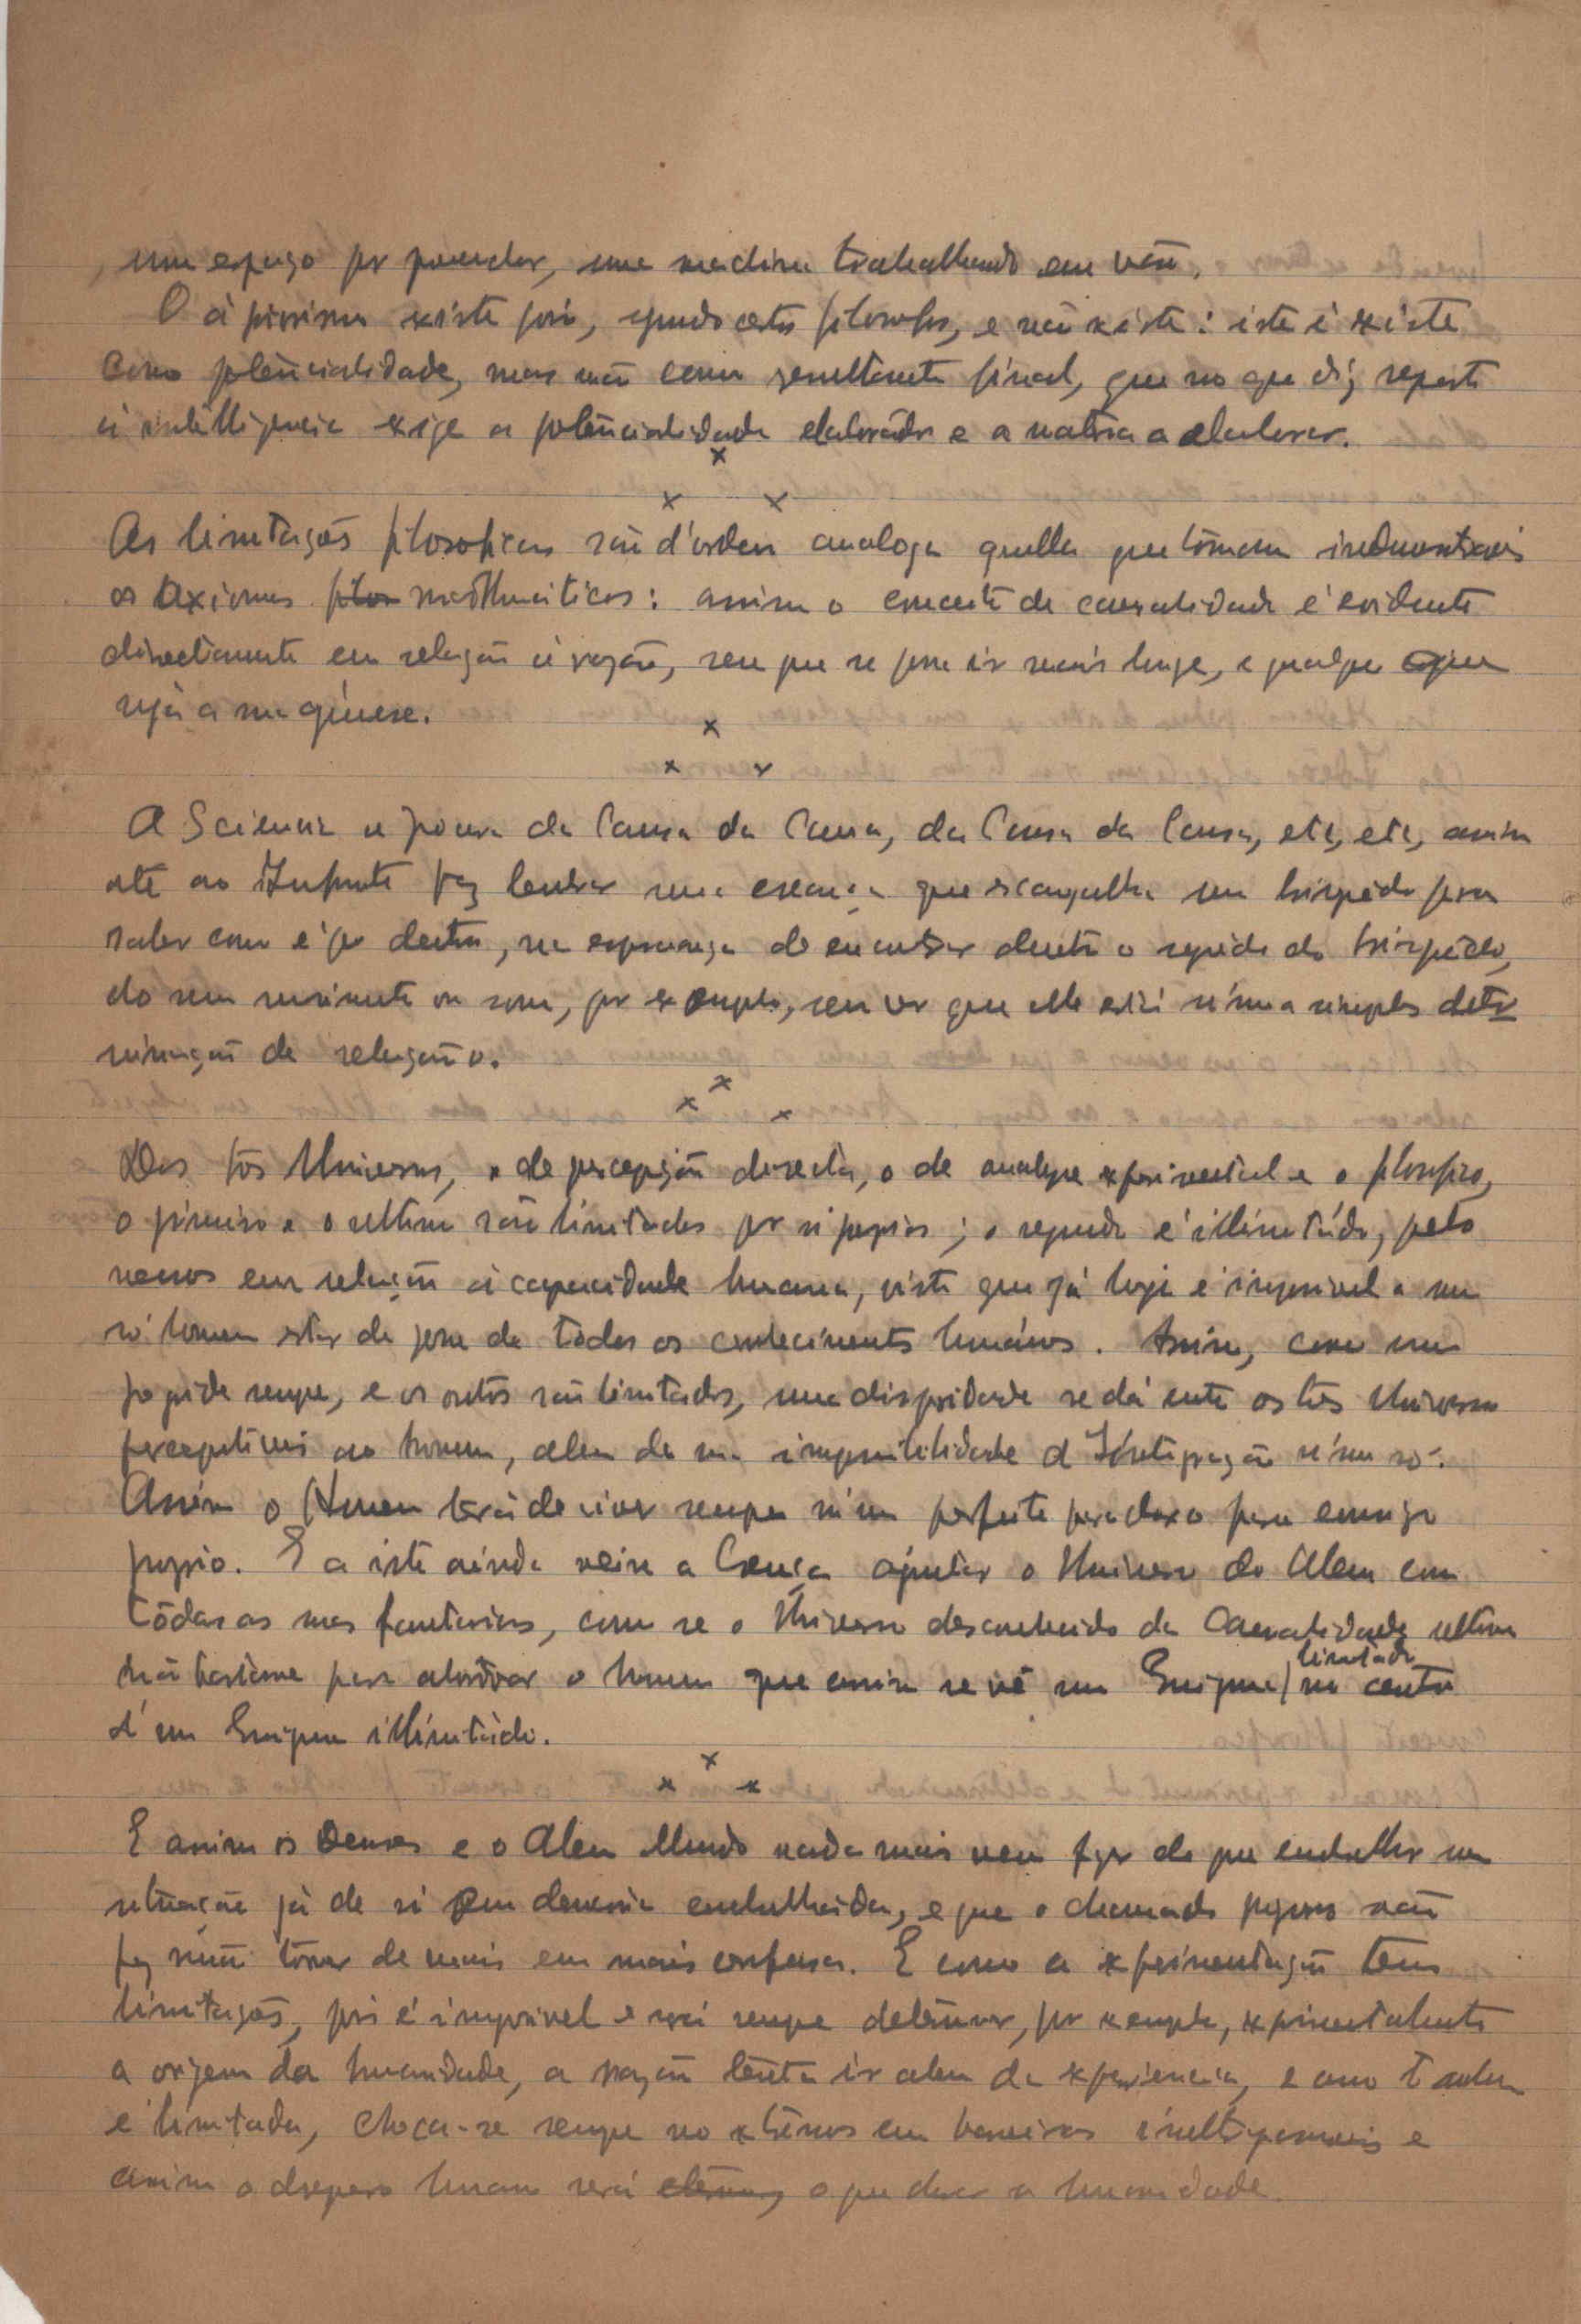 um espaço por preencher, uma machina trabalhando em vão.
O à piori existe pois, segundo certos filosofos, e não existe: isto é existe
como potencialidade, mas não como resultante final, que no que diz respeito
á intelligencia exige a potencialidade elaboradora e a materia a elaborar.
x
x x
As limitações filosoficas são d'ordem analoga áquella que tornam indemonstraveis
os axiomas mathematicos: assim o conceito de causalidade é evidente
directamente em relação á razão, sem que se possa ir mais longe, e qualquer que
seja a sua génese.
x
x x
A Sciencia á procura da Causa da Causa, da Causa da Causa, etc, etc, assim
até ao Infinito faz lembrar uma creança que escangalha um brinquedo para
saber como é por dentro, na esperança de encontrar dentro o segredo do brinquedo,
do seu movimento ou som, por exemplo, sem ver que elle está n'uma simples deter
minação de relação.
x
x x
Dos tres Universos, o de percepção directa, o de analyse experimental e o filosofico,
o primeiro e o ultimo são limitados por si proprios; o segundo é illimitado, pelo
menos em relação á capacidade humana, visto que já hoje é impossivel a um
só homem estar de posse de todos os conhecimentos humanos. Assim, como um
progride sempre, e os outros são limitados, uma disparidade se dá entre os tres Universos
perceptiveis ao homem, alem da sua impossibilidade d'Integração n'um só.
Assim o Homem terá de viver sempre n'um perfeito paradoxo para comsigo
proprio. E a isto ainda veiu a Crença ajuntar o Universo do Alem com
tôdas as suas fantasias, como se o Universo desconhecido da Causalidade ultima
não bastasse para atordoar o homem que assim se vê um Enigma limitado no centro
d'um Enigma illimitado.
x
x x
E assim os Deuses e o Alem Mundo nada mais veem fazer do que embrulhar uma
situação já de si sem demasia embrulhada, e que o chamado progresso não
faz senão tornar de mais em mais confusa. E como a experimentação tem
limitações, pois é impossivel e será sempre determinar, por exemplo, experimentalmente
a origem da humanidade, a razão tenta ir alem da experiencia, e como tambem
é limitada, choca-se sempre nos extremos em barreiras inultrapassaveis e
assim o desespero humano será eterno, o que durar a humanidade.